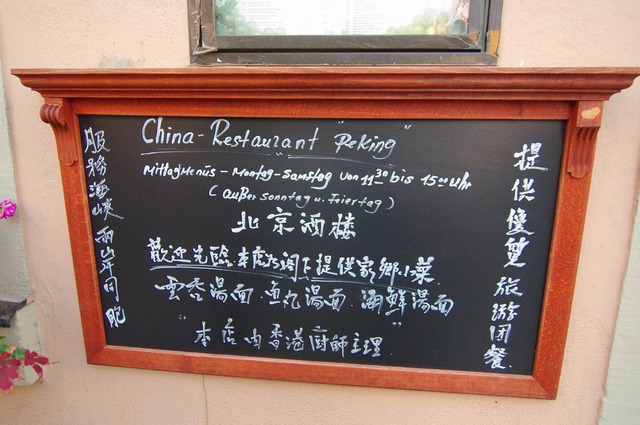 China-Restaurant "Peking"
Mittagmenüs - Montag-Samstag von 11³⁰ bis 15⁰⁰ Uhr
(außer Sonntag u. Feiertag)
北京酒楼
歡迎光臨.本店为阁下提供家鄉小菜
雲吞湯面.魚丸湯面.海鮮湯面
"本店由香港厨師主理"
提供優質旅游团餐
服務海峡兩岸同胞